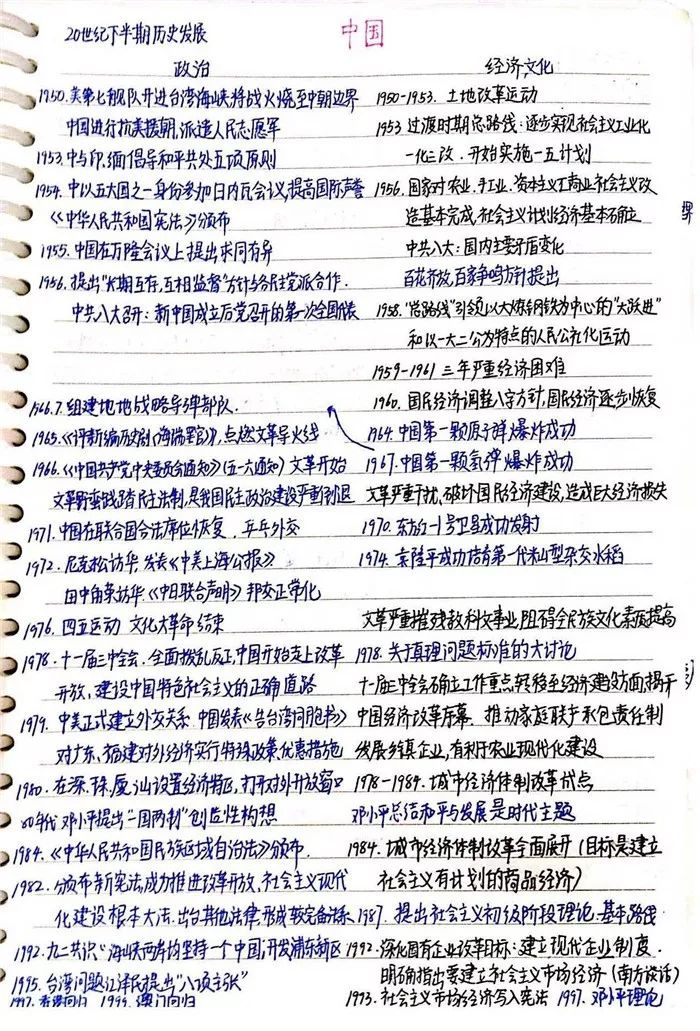 20世纪下半期历史发展
中国
政治
经济,文化
1950.美第七舰队开进台湾海峡,将战火烧至中朝边界
中国进行抗美援朝,派遣人民志愿军
1953.中与印.缅倡导和平共处五项原则
1954.中以五大国之一身份参加日内瓦会议提高国际声誉
《中华人民共和国宪法》颁布
1955.中国在万隆会议上提出求同存异
1956.提出“长期互存,互相监督”方针与各民主党派合作.
中共八大召开:新中国成立后党召开的第一次全国代表
1966.7.组建地地战略导弹部队.
1965.《评新编历史剧〈海瑞罢官〉》,点燃文革导火线
1966.《中国共产党中央委员会通知》(五一六通知) 文革开始
文革野蛮践踏民主法制,是我国民主政治建设严重倒退
1971.中国在联合国合法席位恢复.乒乓外交
1972.尼克松访华.发表《中美上海公报》
田中角荣访华.《中日联合声明》邦交正常化
1976.四五运动 文化大革命结束
1978.十一届三中全会.全面拨乱反正,中国开始走上改革
开放,建设中国特色社会主义的正确道路
1979.中美正式建立外交关系.中国发表《告台湾同胞书》
对广东、福建对外经济实行特殊政策优惠措施
1980.在深.珠.厦.汕设置经济特区,打开对外开放窗口
80年代 邓小平提出“一国两制”创造性构想
1984.《中华人民共和国民族区域自治法》颁布.
1982.颁布新宪法,成功推进改革开放,社会主义现代
化建设根本大法.出台其他法律,形成较完备体系
1992.九二共识“海峡两岸均坚持一个中国,开发浦东新区
1995.台湾问题江泽民提出“八项主张”
1997.香港回归 1999.澳门回归
1950-1953. 土地改革运动
1953 过渡时期总路线:逐步实现社会主义工业化
一化三改.开始实施一五计划
1956.国家对农业.手工业.资本主义工商业社会主义改
造基本完成,社会主义计划经济基本确立
中共八大:国内主要矛盾变化
百花齐放,百家争鸣方针提出
1958.“总路线”引领以大炼钢铁为中心的“大跃进”
和以一大二公为特点的人民公社化运动
1959-1961 三年严重经济困难
1960.国民经济调整八字方针,国民经济逐步恢复
1964.中国第一颗原子弹爆炸成功
1967.中国第一颗氢弹爆炸成功
文革严重干扰、破坏国民经济建设,造成巨大经济损失
1970.东方红一号卫星成功发射
1974.袁隆平成功培育第一代籼型杂交水稻
文革严重摧残教科文事业,阻碍全民族文化素质提高
1978.关于真理问题标准的大讨论
十一届三中全会确立工作重点转移至经济建设方面,揭开
中国经济改革序幕.推动家庭联产承包责任制
发展乡镇企业,有利于农业现代化建设
1978-1984.城市经济体制改革试点
邓小平总结和平与发展是时代主题
1984.城市经济体制改革全面展开(目标是建立
社会主义有计划的商品经济)
1987.提出社会主义初级阶段理论.基本路线
1992.深化国有企业改革目标:建立现代企业制度.
明确指出要建立社会主义市场经济(南方谈话)
1993.社会主义市场经济写入宪法 1997.邓小平理论